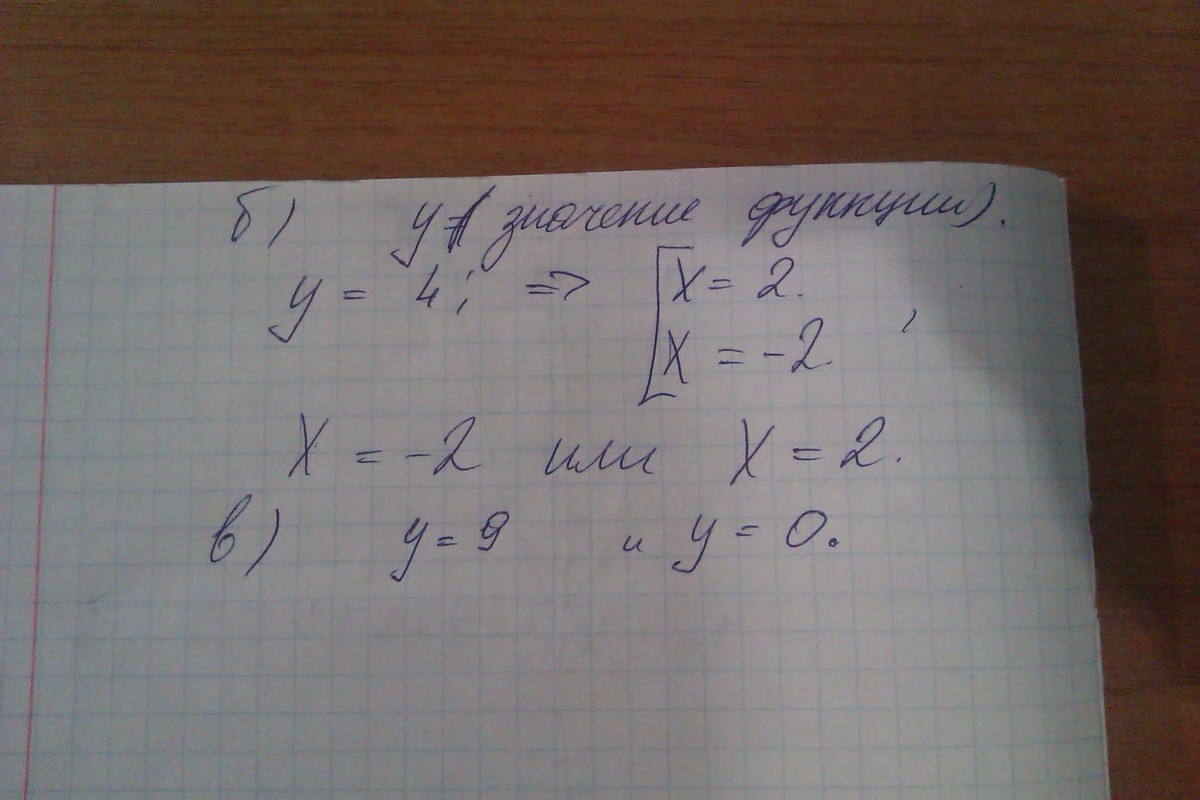 б) y (значение функции).
y = 4; => [ x = 2.
x = -2 ,
x = -2 или x = 2.
в) y = 9 и y = 0.